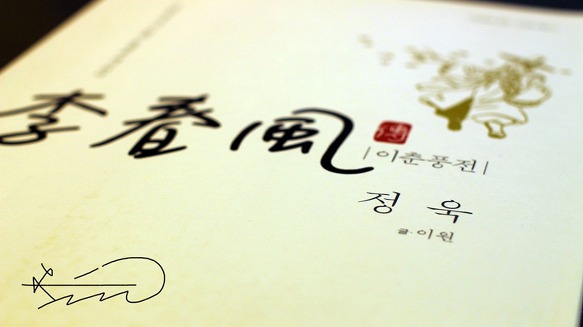 李春風
傳
|이춘풍전|
정 욱
글·이원